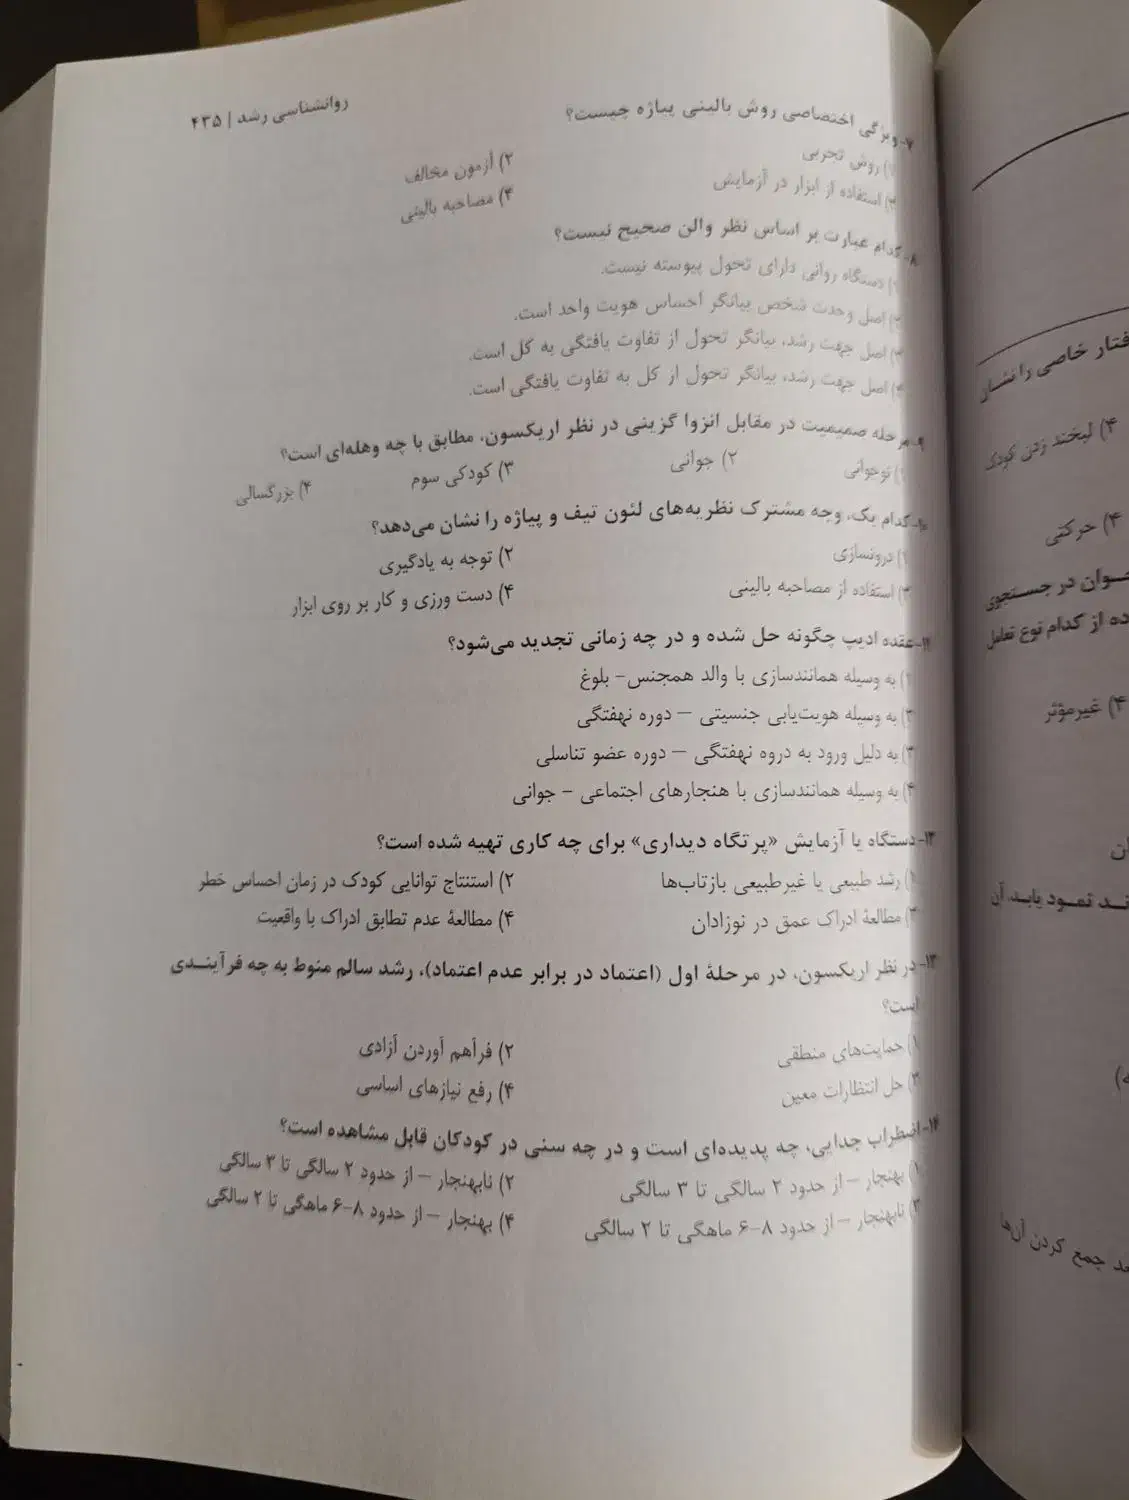 روانشناسی رشد | ۴۳۵
۷- ویژگی اختصاصی روش بالینی پیاژه چیست؟
۱) روش تجربی
۲) آزمون مخالف
۳) استفاده از ابزار در آزمایش
۴) مصاحبه بالینی
۸- کدام عبارت بر اساس نظر والن صحیح نیست؟
۱) دستگاه روانی دارای تحول پیوسته نیست.
۲) اصل وحدت شخص بیانگر احساس هویت واحد است.
۳) اصل جهت رشد، بیانگر تحول از تفاوت یافتگی به کل است.
۴) اصل جهت رشد، بیانگر تحول از کل به تفاوت یافتگی است.
۹- مرحله صمیمیت در مقابل انزوا گزینی در نظر اریکسون، مطابق با چه وهله‌ای است؟
۱) نوجوانی ۲) جوانی ۳) کودکی سوم ۴) بزرگسالی
۱۰- کدام یک، وجه مشترک نظریه‌های لئون تیف و پیاژه را نشان می‌دهد؟
۱) درونسازی
۲) توجه به یادگیری
۳) استفاده از مصاحبه بالینی
۴) دست ورزی و کار بر روی ابزار
۱۱- عقده ادیپ چگونه حل شده و در چه زمانی تجدید می‌شود؟
۱) به وسیله همانندسازی با والد همجنس- بلوغ
۲) به وسیله هویت‌یابی جنسیتی – دوره نهفتگی
۳) به دلیل ورود به دروه نهفتگی – دوره عضو تناسلی
۴) به وسیله همانندسازی با هنجارهای اجتماعی - جوانی
۱۲- دستگاه یا آزمایش «پرتگاه دیداری» برای چه کاری تهیه شده است؟
۱) رشد طبیعی یا غیرطبیعی بازتاب‌ها
۲) استنتاج توانایی کودک در زمان احساس خطر
۳) مطالعهٔ ادراک عمق در نوزادان
۴) مطالعهٔ عدم تطابق ادراک با واقعیت
۱۳- در نظر اریکسون، در مرحلهٔ اول (اعتماد در برابر عدم اعتماد)، رشد سالم منوط به چه فرآیندی
است؟
۱) حمایت‌های منطقی
۲) فراهم آوردن آزادی
۳) حل انتظارات معین
۴) رفع نیازهای اساسی
۱۴- اضطراب جدایی، چه پدیده‌ای است و در چه سنی در کودکان قابل مشاهده است؟
۱) بهنجار – از حدود ۲ سالگی تا ۳ سالگی
۲) نابهنجار – از حدود ۲ سالگی تا ۳ سالگی
۳) نابهنجار – از حدود ۸-۶ ماهگی تا ۲ سالگی
۴) بهنجار – از حدود ۸-۶ ماهگی تا ۲ سالگی
فتار خاصی را نشان
۴) لبخند زدن کودک
۴) حرکتی
در جستجوی
ده از کدام نوع تعامل
۴) غیرمؤثر
ان
ند نمود یابد، آن
جمع کردن آن‌ها